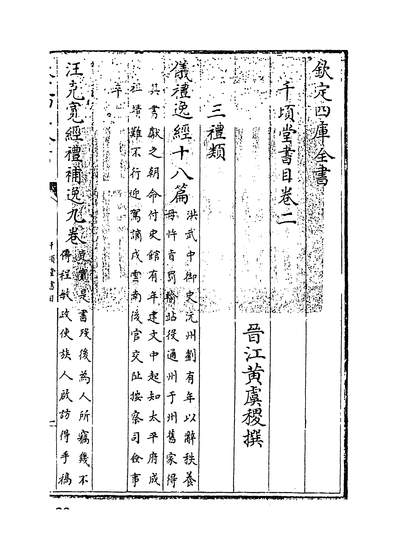 欽定四庫全書
千頃堂書目卷二
晉江黃虞稷撰
三禮類
儀禮逸經十八篇
洪武中御史沅州劉有年以辭秩養
母忤旨罰輸站役通州于州舊家得
其書獻之朝命付史館有年建文中起知太平府成
祖靖難不行迎駕謫戍雲南後官交阯按察司僉事
卒
汪克寬經禮補逸九卷
克寬是書殁後為人所竊幾不
傳程敏政使族人啟訪得手稿
千頃堂書目